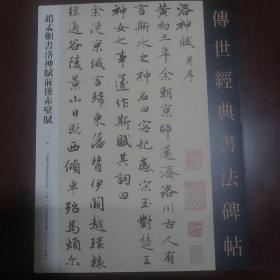 傳世經典書法碑帖
趙孟頫書洛神賦前後赤壁賦
洛神賦 并序
黃初三年余朝京師還濟洛川古人有
言斯水之神名曰宓妃感宋玉對楚王
神女之事遂作斯賦其詞曰
余從京域言歸東藩背伊闕越轘轅
經通谷陵景山日既西傾車殆馬煩爾